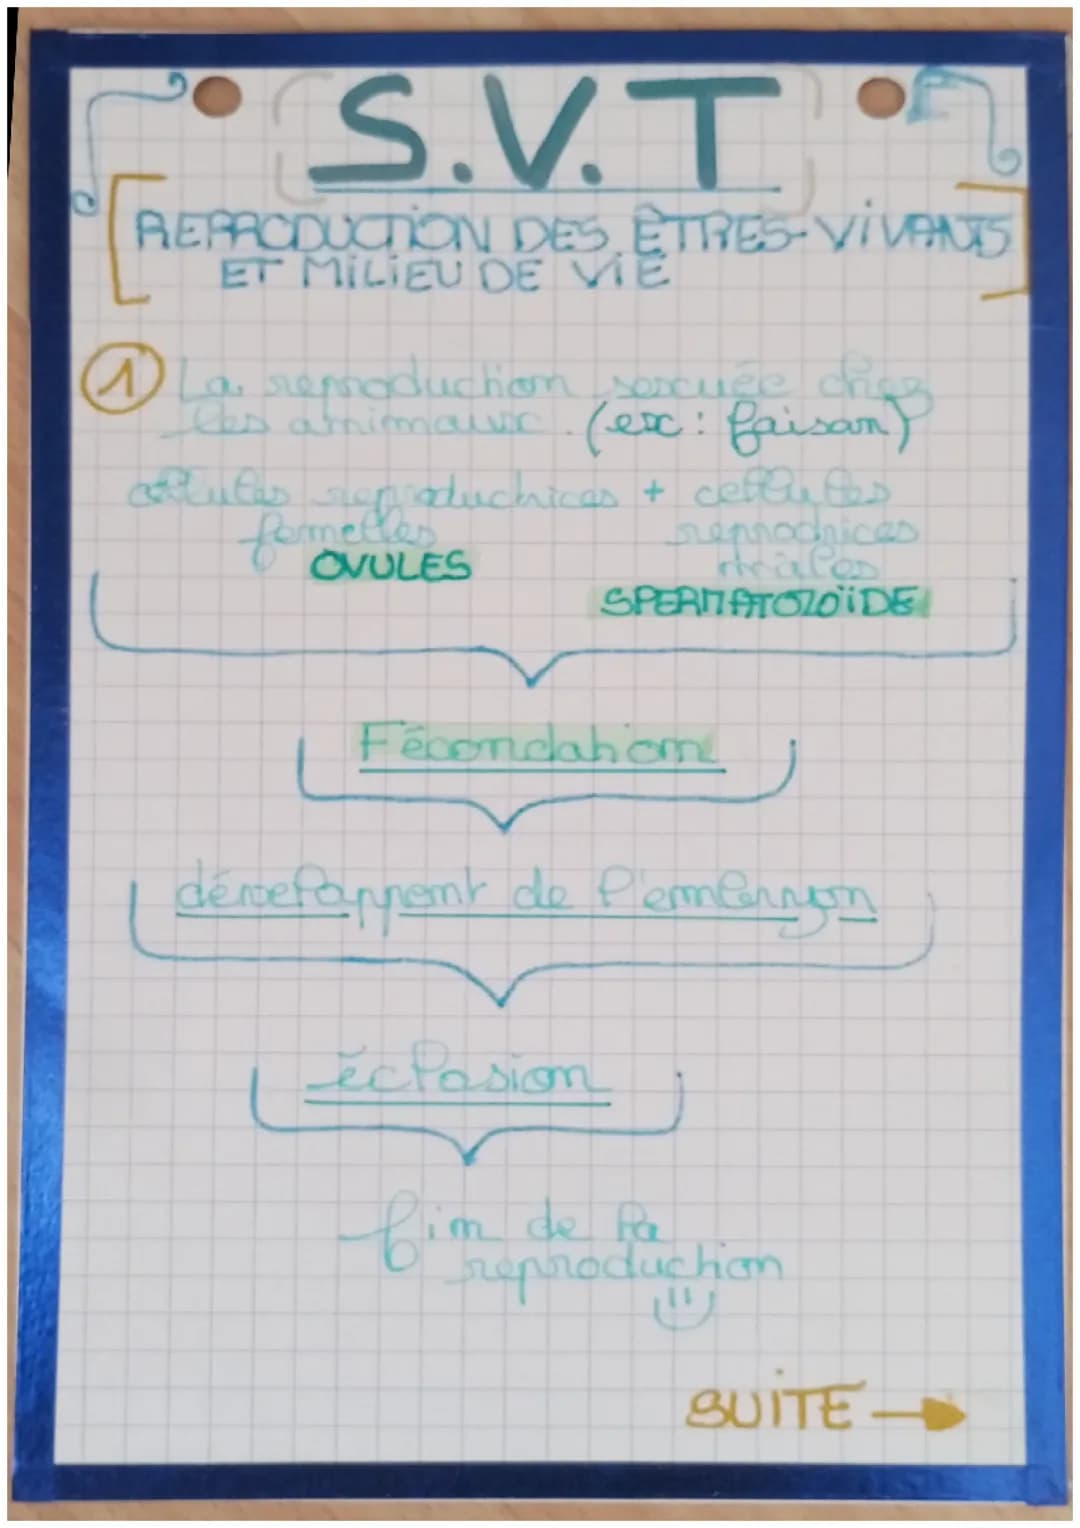 S.V.T
REPRODUCTION DES ÊTRES-VIVANTS
ET MILIEU DE VIE
1 La reproduction sexuée chez
les animaux. (ex : faisan)
cellules reproductrices + cellules
femelles reprodrices
OVULES mâles
SPERMATOZOÏDE
Fécondation
dévelappemt de l'embryon
éclosion
fin de la
reproduction
SUITE →